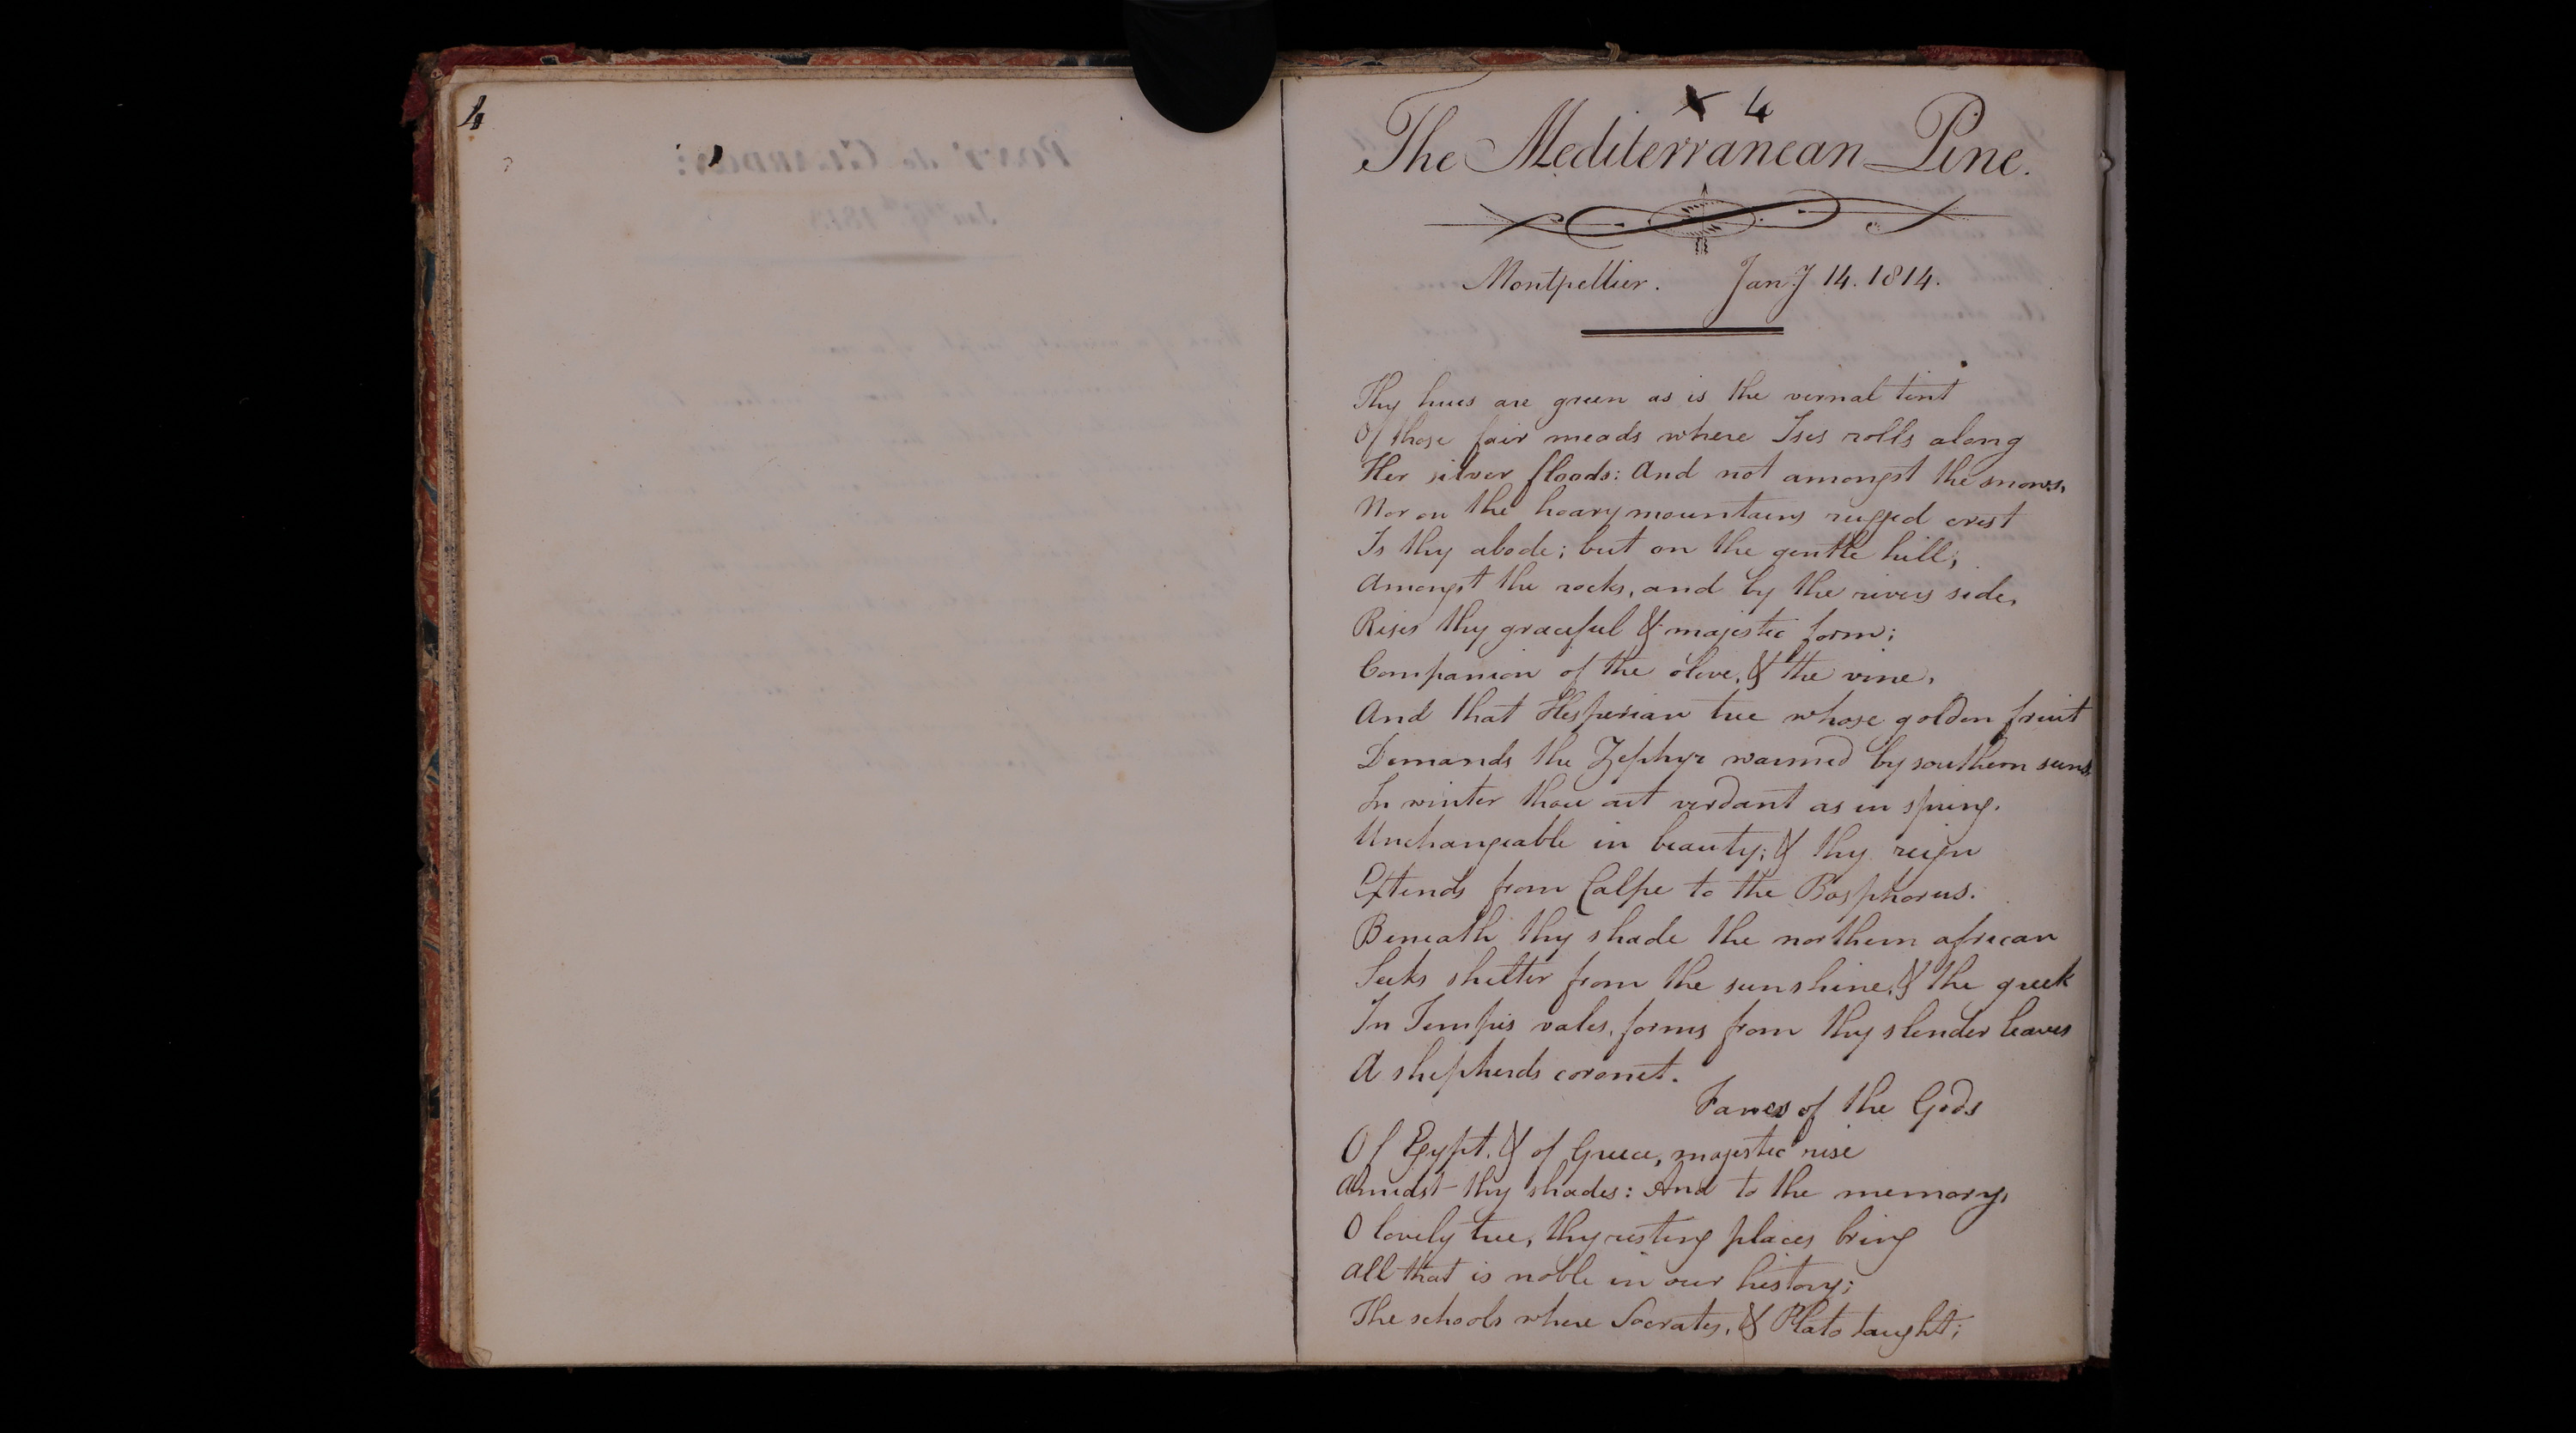 4
x 4
The Mediterranean Pine.
Montpellier. Jany 14. 1814.
Thy hues are green as is the vernal tint
Of those fair meads where Isis rolls along
Her silver floods: And not amongst the snows,
Nor on the hoary mountains rugged crest
Is thy abode; but on the gentle hill,
Amongst the rocks, and by the rivers side,
Rises thy graceful & majestic form;
Companion of the olive, & the vine,
And that Hesperian tree whose golden fruit
Demands the Zephyr warmed by southern suns
In winter thou art verdant as in spring.
Unchangeable in beauty; & thy reign
Extends from Calpe to the Bosphorus.
Beneath thy shade the northern african
Seeks shelter from the sunshine, & the greek
In Tempes vales, forms from thy slender leaves
A shepherds coronet.
Fanes of the Gods
Of Egypt, & of Greece, majestic rise
Amidst thy shades: And to the memory,
O lovely tree, thy resting places bring
All that is noble in our history;
The schools where Socrates, & Plato taught;